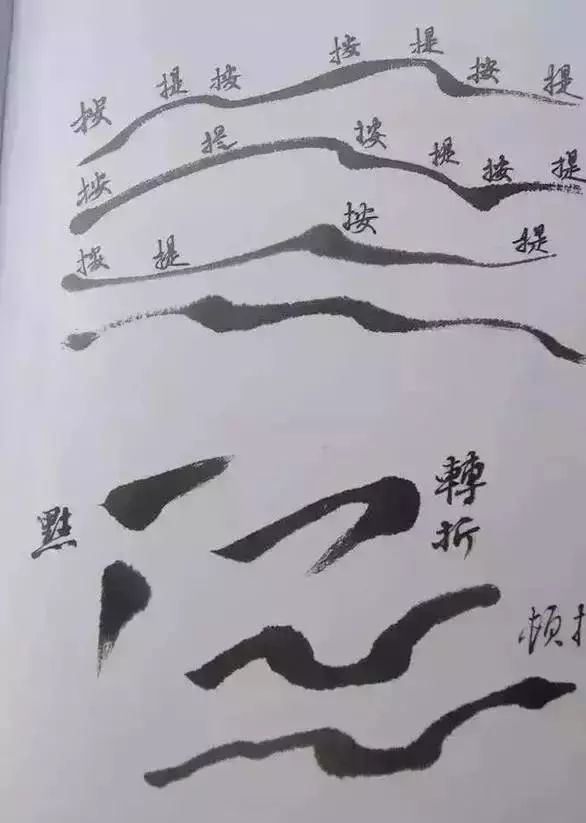 按 提 按 按 提 按 提
按 提 按 提 按 提
按 提 按 提
點
轉折
頓